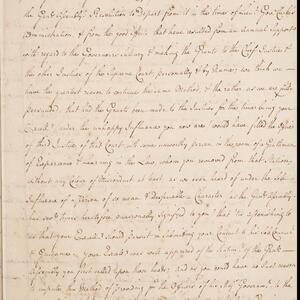 the Genl Assembly's Resolution to Depart from it in the times of
communication, & from the good effects that have resulted from an annual Support
with regard to the Governors Salary & making the Grants to the Chief Justice &
the other Justices of the Supreme Court personally & by Names; we think we
have the greatest reason to continue the same Method; & the rather as we are fully
persuaded, that had the Grants been made to the Justices for the time being your
Excelly under the unhappy Influence you now are would have filled the Office
of third Justice of that Court with some unworthy person in the room of a Gentleman
of Experience & Learning in the Law, whom you removed from that Station,
without any Color of Misconduct at least as we ever heard of under the
Influence of a Person of so mean & Despicable a Character as the Genl Assembly
have more than heretofore unanimously signified to you; that 'tis astonishing to
us that your Excelly should persist in submitting your Conduct to his
Guidance. Your Excelly was well apprized of the Nature of the
Assembly you first acted upon here made; and so you would have us
to the Method of providing for the Officers of his Maj. Governmt to the